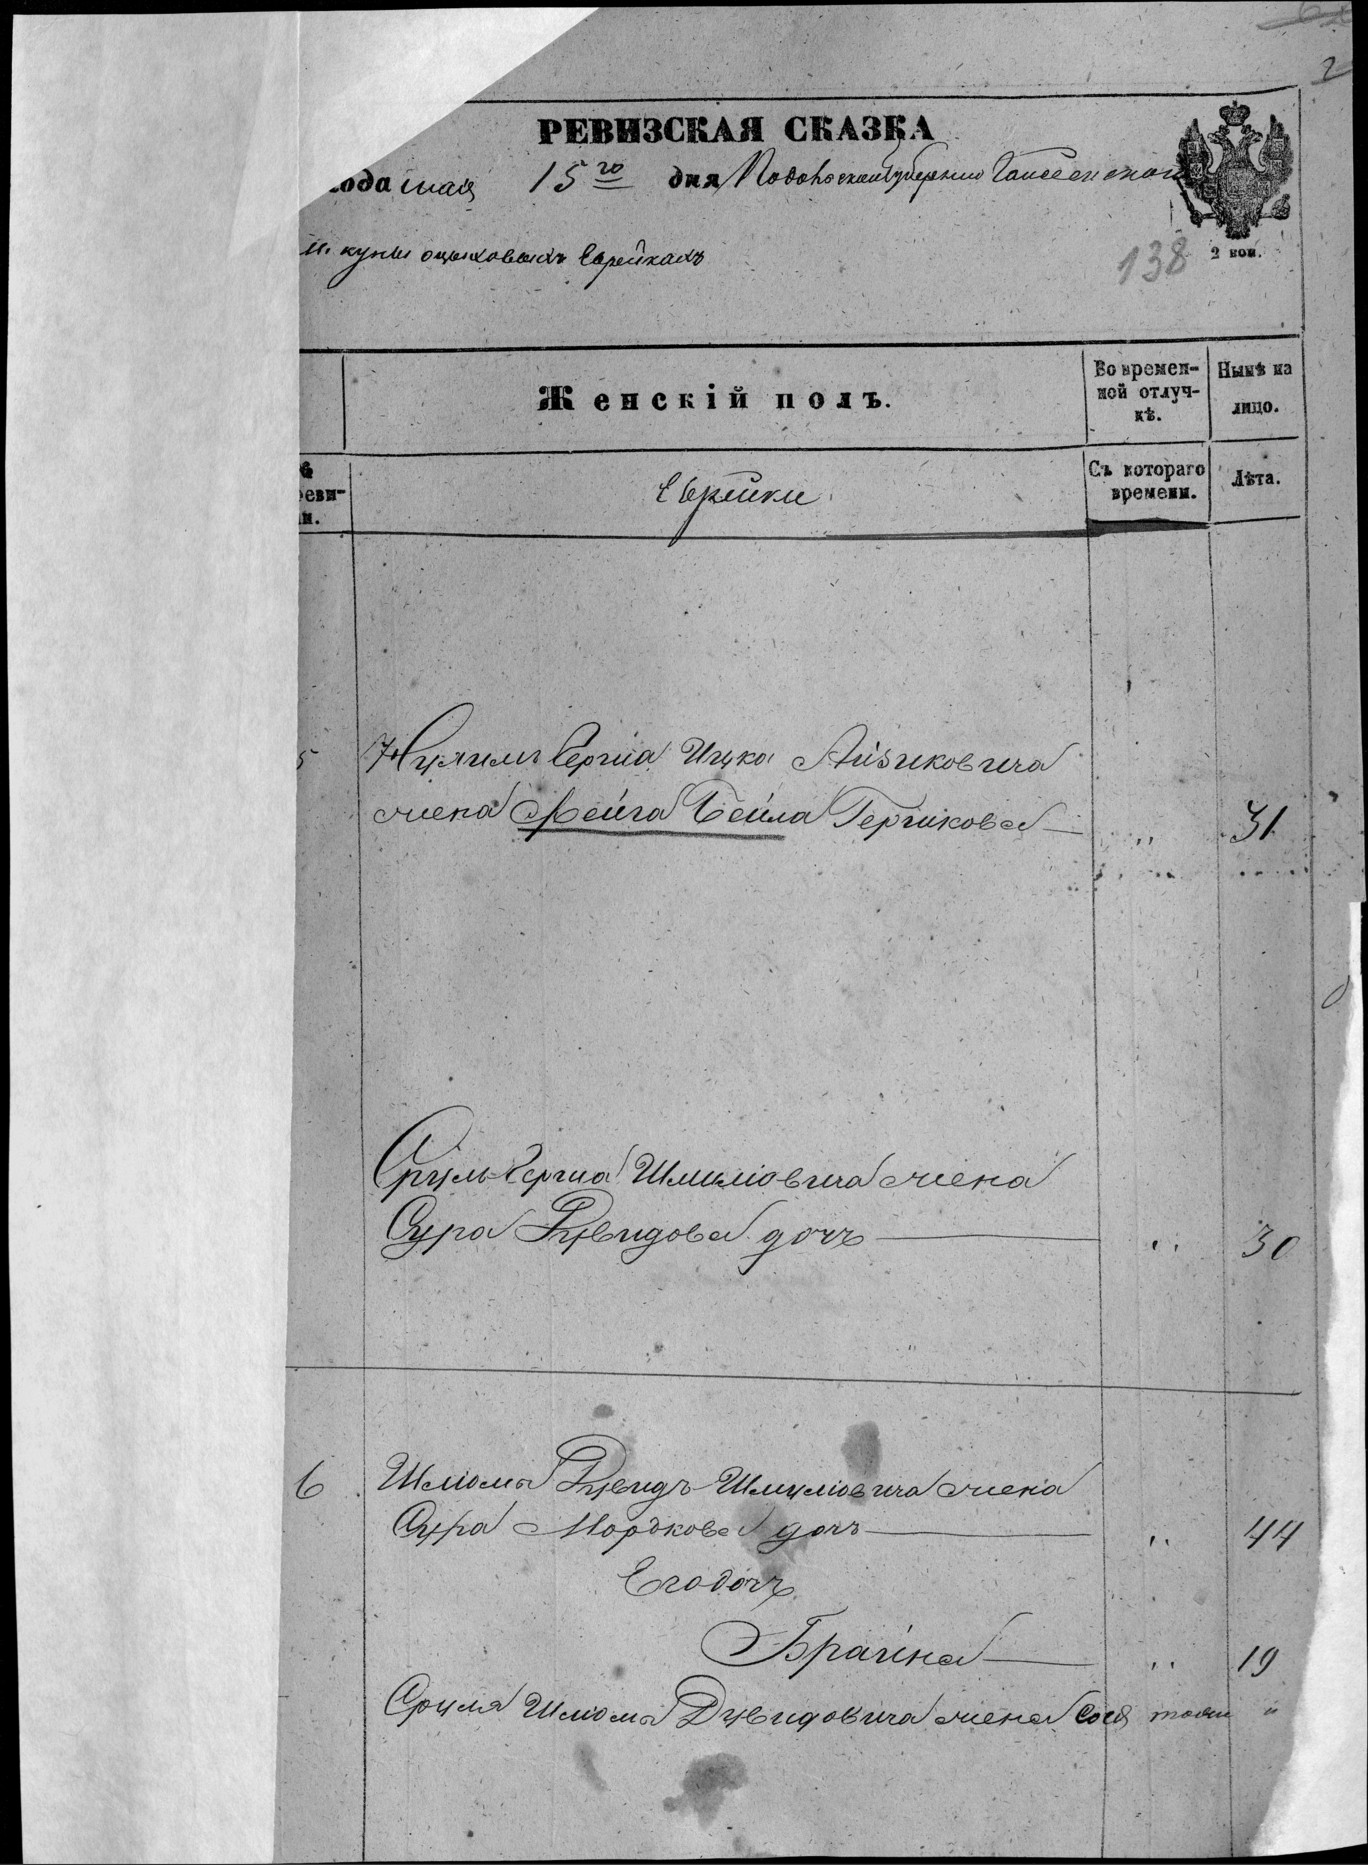 2
РЕВИЗСКАЯ СКАЗКА
года мая 15го дня Подольской Губернии Гайсенской
купи Еврейкахъ
138
2 коп.
Женскій полъ.
Во времен-
ной отлуч-
кѣ.
Нынѣ на
лицо.
реви-
и.
Еврейки
Съ котораго
времени.
Лѣта.
5
Нухимъ Герша Ицка Айзиковича
жена Фейга Бейла Гершкова
„
31
Сруль Герша Шмулiовича жена
Сура Дувидова дочь
„
30
6
Шлiомы Дувидъ Шмулiовича жена
Сура Мордкова дочь
„
44
Его дочь
Брагiна
„
19
Сруля Шлiомы Дувидовича жена Сося
"